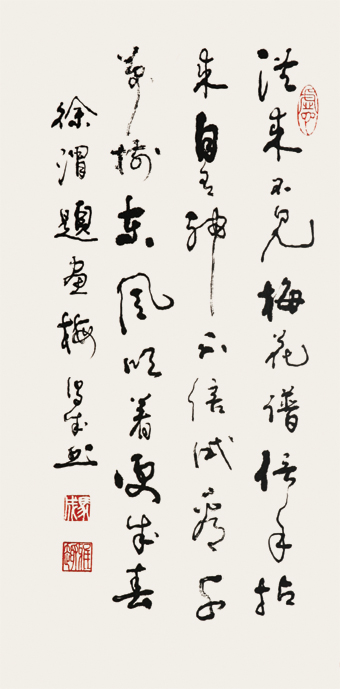 從来不見梅花譜信手拈
来自有神不信試看千
萬樹東風吹着便成春
徐渭題畫梅